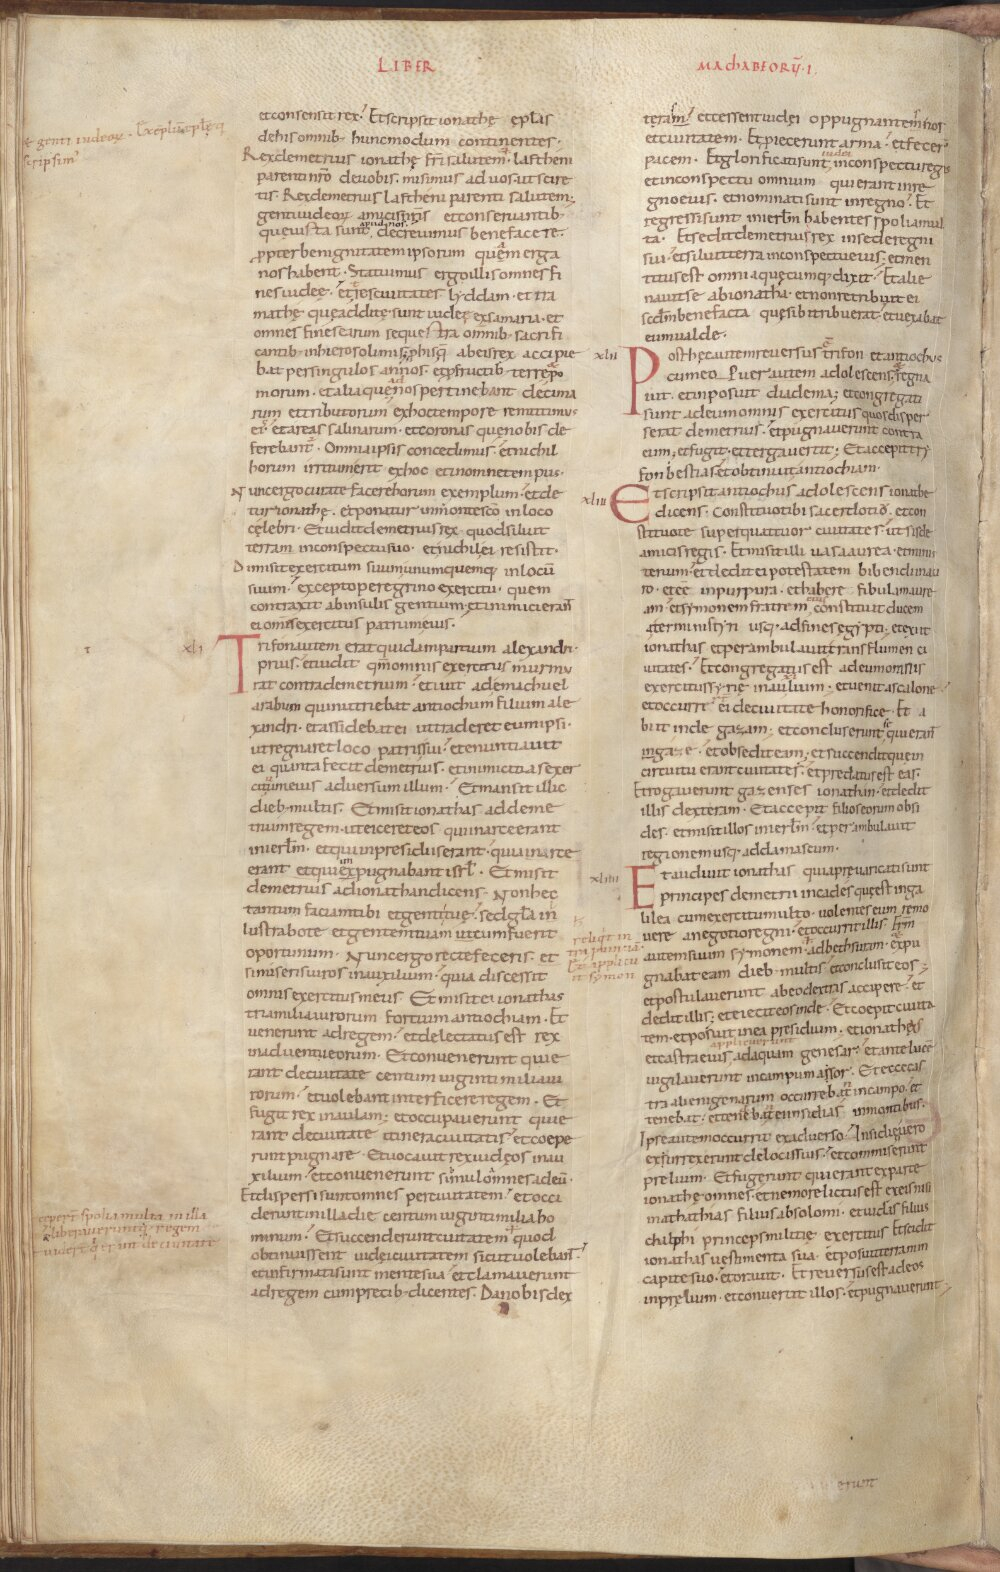 LIBER
MAChABEORU̅·I·
& genti iudeoꝝ · Exe̅plu̅ ep̅lę q
scripsim᾽
& consensit rex. Et scripsit ionathę ep̅las
de his omnib· hunc modum continentes·
Rex demetrius ionathę fr̅i salutem· lastheni
parenti nr̅o de uobis· misimus ad uos ut scire
tis. Rex demetrius lastheni parenti salutem;
genti iudeoꝝ amicis nr̅is et conseruantib·
quę iusta sunt apud nos decreuimus benefacere·
ꝓpter benignitatem ipsorum quam erga
nos habent· Statuimus ergo illis omnes fi
nes iudeę· et tres ciuitates· lyddam· et ra
mathę quę additę sunt iudeę ex samaria· et
omnes fines earum sequestra omnib· sacrifi
cantib· in hierosolimis· ꝓ his quę ab eis rex accipie
bat per singulos annos· et ꝓ fructib· terrę ꝓ po
morum· et alia quę ad nos pertinebant decima
rum et tributorum ex hoc tempore remittimus
ei· et areas salinarum· et coronas quę nobis de
ferebant· Omnia ipsis concedimus· et nichil
horum irritum erit ex hoc et in omne tempus·
Nunc ergo curate facere horum exemplum· et de
tur ionathę· et ponatur in monte sc̅o in loco
cęlebri· Et uidit demetrius rex quod siluit
terram in conspectu suo· et nichil ei resistit·
Dimisit exercitum suum unumquemq; in locu̅
suum· excepto peregrino exercitu· quem
contraxit ab insulis gentium· et inimici eran̅
ei omnis exercitus patrum eius·
xli
Trifon autem erat quidam partium alexandri·
prius· et uidit qm̅ omnis exercitus murmu
rat contra demetrium· et iuit ad emachuel
arabum qui nutriebat antiochum filium ale
xandri· et assidebat ei ut traderet eum ipsi·
ut regnaret loco patris sui· et enuntiauit
ei quanta fecit demetrius· et inimicitias exer
cituum eius aduersum illum· Et mansit illic
dieb· multis· Et misit ionathas ad deme
trium regem· ut eiceret eos qui in arce erant
in ierl̅m· et qui in presidiis erant· quia in arce
erant et qui expugnabant isrl̅· Et misit
demetrius ad ionathan dicens· Non hęc
tantum faciam tibi et genti tuę· sed gl̅a in
lustrabo te et gentem tuam ut cum fuerit
oportunum· Nunc ergo recte feceris· et
si miseris uiros in auxilium· quia discessit
omnis exercitus meus· Et misit ei ionathas
tria milia uirorum fortium antiochiam· Et
uenerunt ad regem· et delectatus est rex
in aduentu eorum· Et conuenerunt qui e
rant de ciuitate centum uiginti milia ui
rorum· et uolebant interficere regem· Et
fugit rex in aulam; et occupauerunt qui e
rant de ciuitate itinera ciuitatis· et coepe
runt pugnare· Et uocauit rex iudęos in au
xilium· et conuenerunt simul omnes ad eu̅·
Et dispersi sunt omnes per ciuitatem· et occi
derunt in illa die centum uiginti milia ho
minum· Et succenderunt ciuitatem
regem
obtinuissent iudęi ciuitatem sicut uolebant·
et infirmati sunt mente sua· et clamauerunt
ad regem cum precib· dicentes· Da nobis dex
teram· et cessent iudei oppugnantes nos
et ciuitatem· Et ꝓiecerunt arma· et fecer̅
pacem· Et glorificati sunt iudei in conspectu regis
et in conspectu omnium qui erant in re
gno eius· et nominati sunt in regno· Et
regressi sunt in ierl̅m habentes spolia mul
ta· Et sedit demetrius rex in sede regni
sui· et siluit terra in conspectu eius; et men
titus est omnia quęcumq; dixit· Et alie
nauit se ab ionatha· et non retribuit ei
scd̅m benefacta quę sibi tribuerat· et uexabat
eum ualde·
xlii
Post hęc autem reuersus trifon et antiochus
cum eo puer adolescens· et regna
uit· et inposuit diadema; et congregati
sunt ad eum omnis exercitus quos disper
serat demetrius· et pugnauerunt contra
eum; et fugit· et terga uertit; Et accepit try
fon bestias· et obtinuit antiochiam·
xliii
Et scripsit antiochus adolescens ionathę
dicens· Constituo tibi sacerdotiu̅· et con
stituo te super quattuor ciuitates· ut sis de
amicis regis· Et misit illi uasa aurea· et minis
terium· et dedit ei potestatem bibendi in au
ro· et ee̅ in purpura· et habere fibulam aure
am· et symonem fratrem eius constituit ducem
a terminis tyri usq· ad fines egypti· et exiit
ionathas et perambulauit trans flumen ci
uitates· Et congregatus est ad eum omnis
exercitus syrię in auxilium; et uenit ascalone̅·
et occurr̅t ei de ciuitate honorifice· Et a
biit inde gazam; et concluserunt se qui eran̅
in gaze· et obsedit eam; et succendit quę in
circuitu erant ciuitates· et predatus est eas·
Et rogauerunt gazenses ionathan· et dedit
illis dexteram· Et accepit filios eorum obsi
des· et misit illos in ierl̅m· et perambulauit
regionem usq· ad damascum·
xliiii
Et audiuit ionathas quia preuaricati sunt
principes demetrii in cades quę est in ga
lilea cum exercitu multo· uolentes eum remo
uere a negotio regni· et occurrit illis· Fr̅m
autem suum symonem ad bethsuram· expu
gnabat eam dieb· multis· et conclusit eos;
et postulauerunt ab eo dextras accipere· et
dedit illis; et eiecit eos inde· Et coepit ciuita
tem· et posuit in ea presidium· et ionathas
et castra eius ad aquam genesar· et ante luce̅
uigilauerunt in campum assor· Et ecce cas
tra alienigenarum occurrebant in campo· et
tenebat· et tendebant ei insidias in montibus·
Ipse autem occurrit ex aduerso· Insidię uero
exsurrexerunt de locis suis· et commiserunt
prelium· Et fugerunt qui erant ex parte
ionathę omnes· et nemo relictus est ex eis nisi
mathathias filius absolomi· et iudas filius
chalphi princeps militię exercitus Et scidit
ionathas uestimenta sua· et posuit terram in
capite suo· et orauit· Et reuersus est ad eos
in prelium· et conuertit illos· et pugnauerunt·
reliq̅t in
Et applicu
it symon
applicuerunt
ceper̅t spolia multa in illa
& liberauerunt regem
erunt